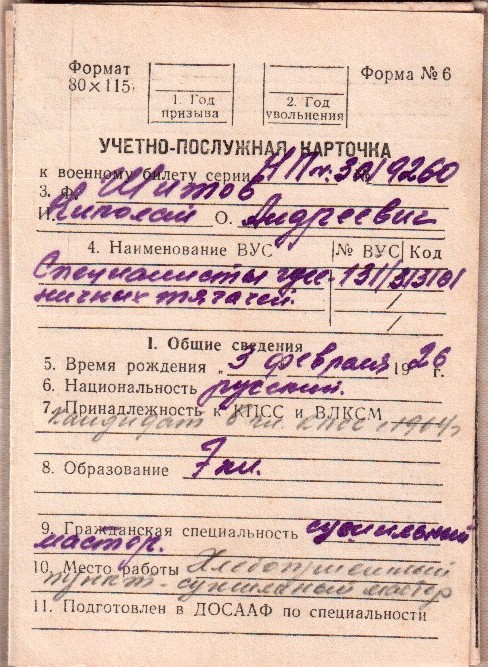 Формат
80×115
Форма № 6
1. Год
призыва
2. Год
увольнения
УЧЕТНО-ПОСЛУЖНАЯ КАРТОЧКА
к военному билету серии НП № 3019260
3. Ф. Шитов
И. Николай О. Андреевич
4. Наименование ВУС № ВУС Код
Специалисты гусе-
ничных тягачей.
I. Общие сведения
5. Время рождения „3 февраля 1926 г.
6. Национальность русский.
7. Принадлежность к КПСС и ВЛКСМ
кандидат в чл. КПСС с 1964 г
8. Образование 7 кл.
9. Гражданская специальность сушильный
мастер.
10. Место работы Хлебоприемный
пункт - сушильный мастер
11. Подготовлен в ДОСААФ по специальности